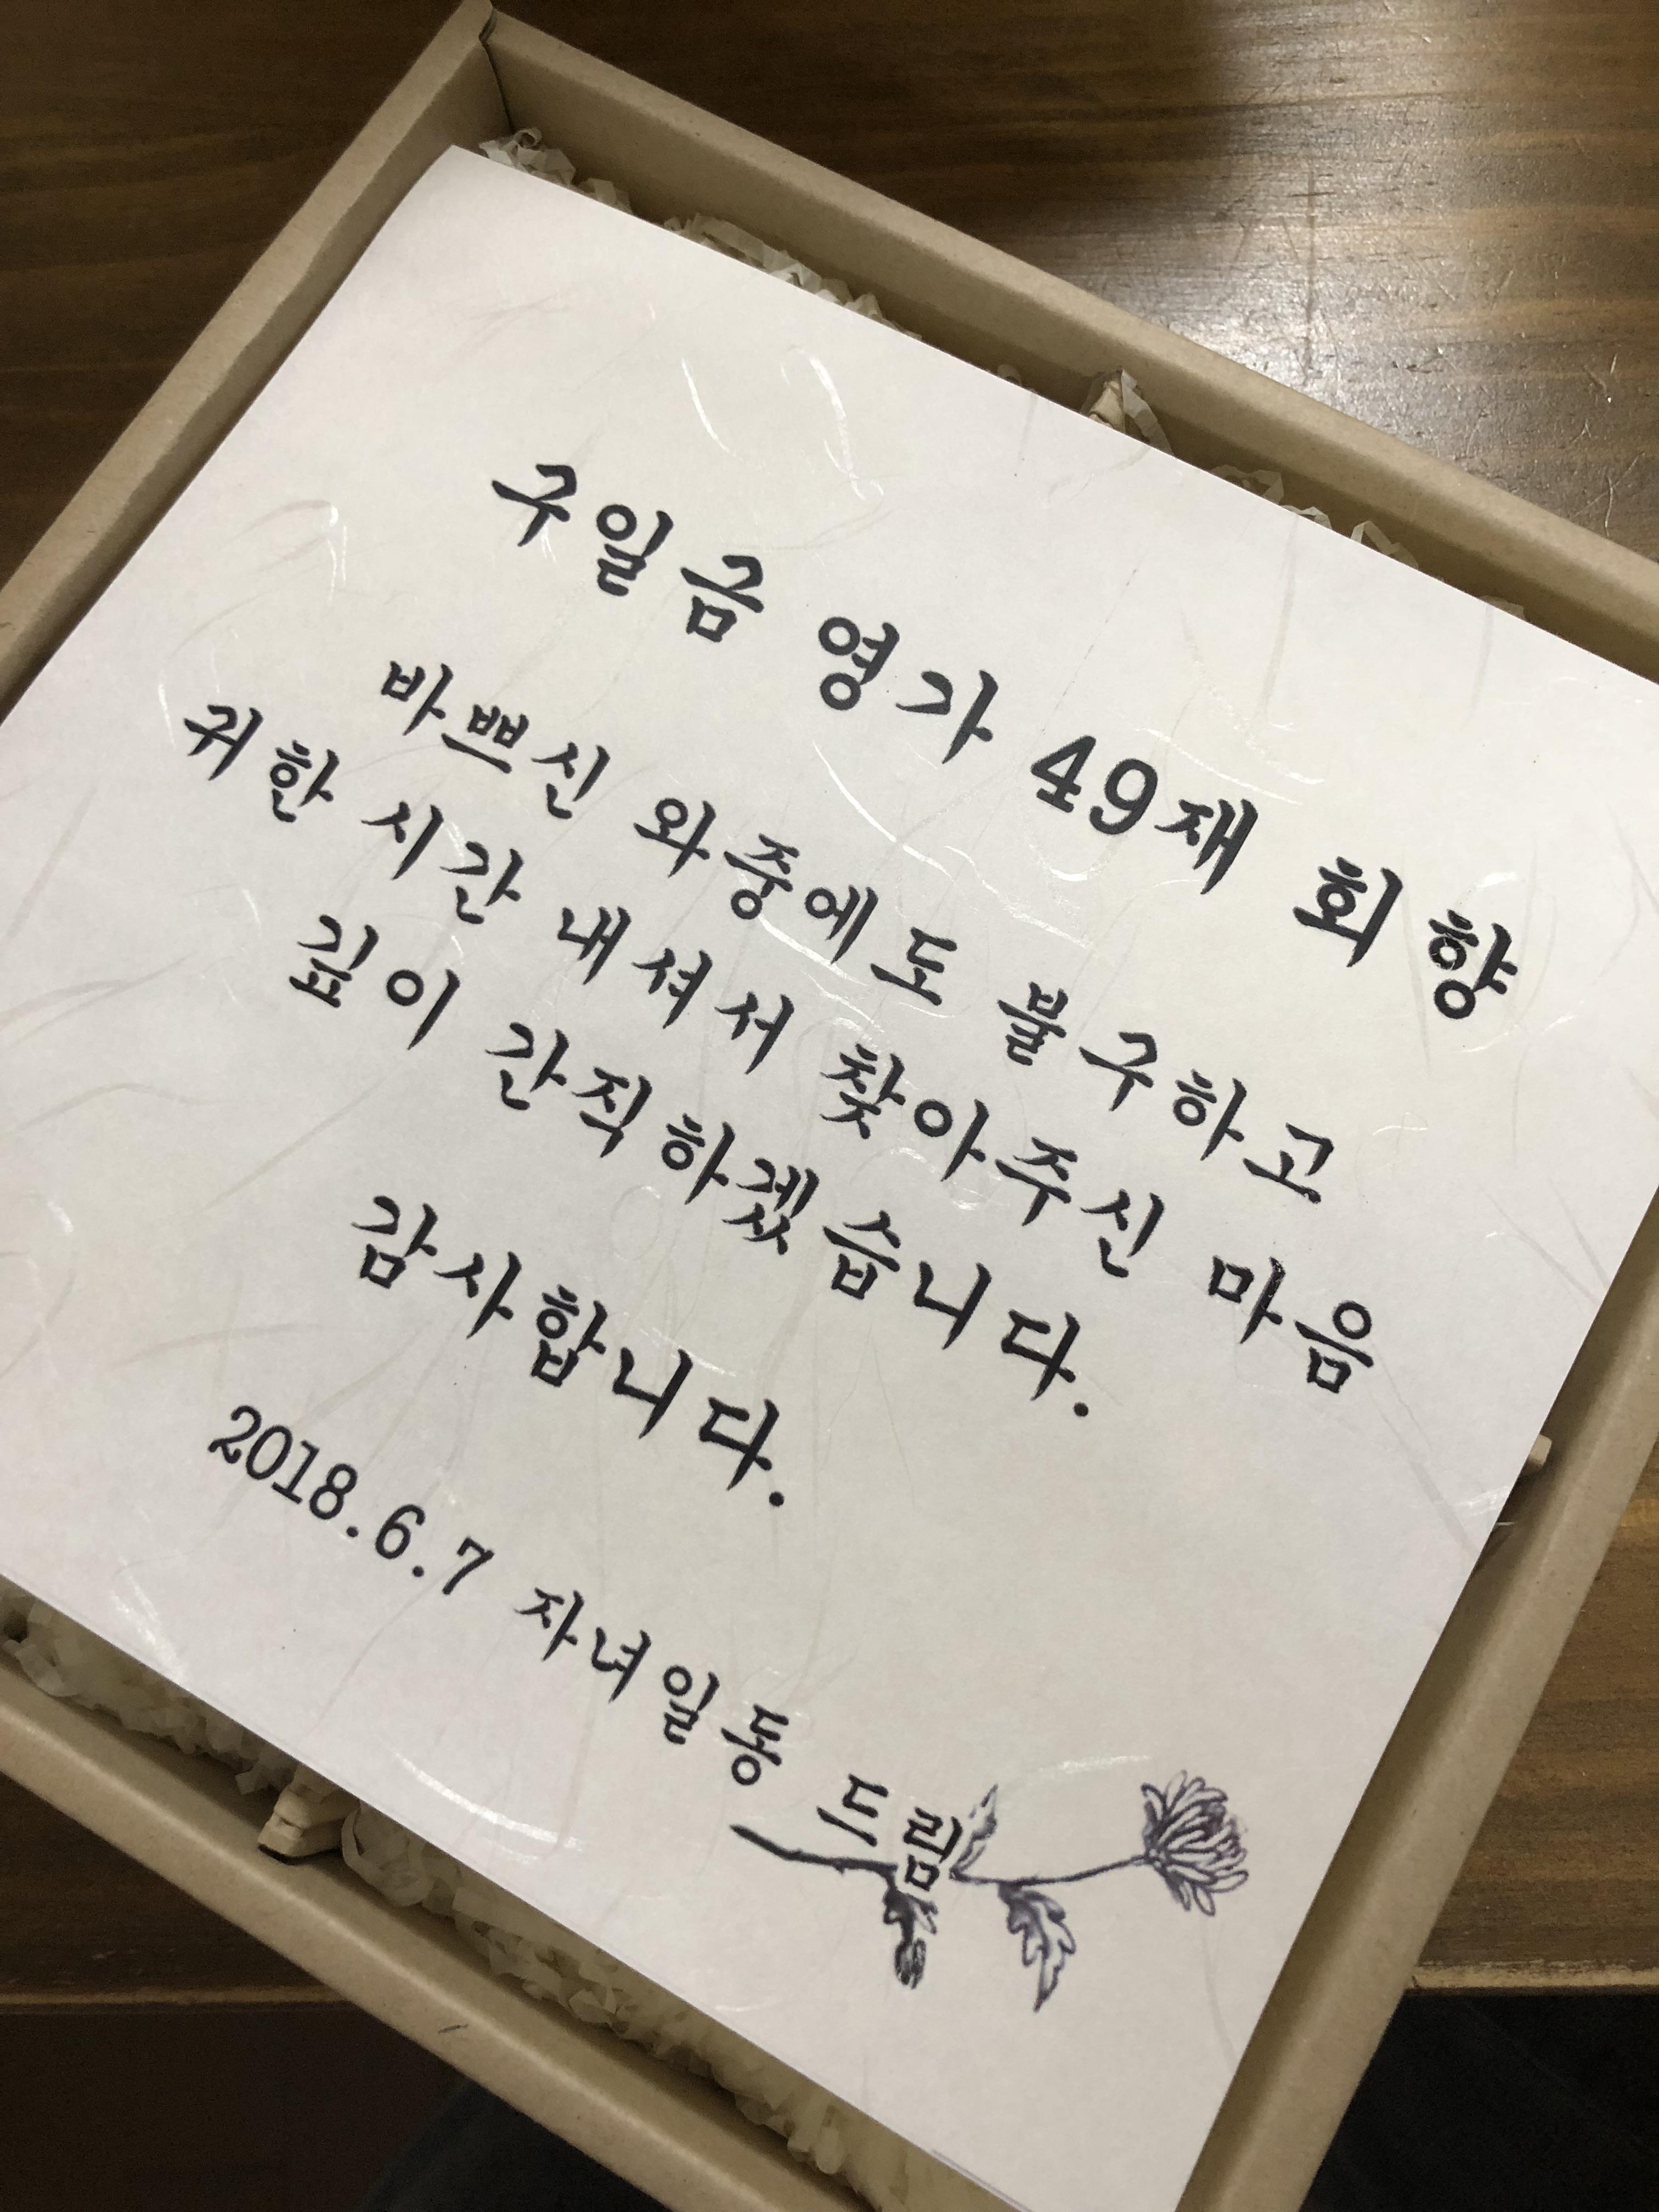 구일금 영가 49재 회향
바쁘신 와중에도 불구하고
귀한 시간 내셔서 찾아주신 마음
깊이 간직하겠습니다.
감사합니다.
2018.6.7 자녀일동 드림